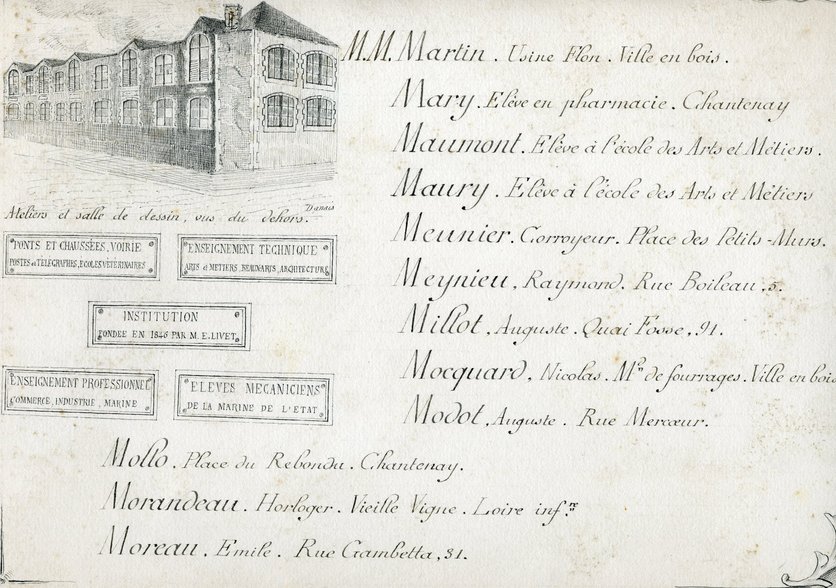 M.M. Martin. Usine Flon. Ville en bois.
Mary. Elève en pharmacie. Chantenay
Maumont. Elève à l'école des Arts et Métiers.
Maury. Elève à l'école des Arts et Métiers
Meunier. Corroyeur. Place des Petits-Murs.
Meynieu, Raymond. Rue Boileau, 5.
Millot, Auguste. Quai Fosse, 91.
Mocquard, Nicolas. Mᵈ de fourrages. Ville en bois
Modot, Auguste. Rue Mercœur.
Mollo. Place du Rebondu. Chantenay.
Morandeau. Horloger. Vieille Vigne. Loire infʳᵉ
Moreau. Emile. Rue Gambetta, 31.
Ateliers et salle de dessin, vus du dehors.
PONTS ET CHAUSSÉES, VOIRIE
POSTES et TÉLÉGRAPHES, ECOLES VÉTÉRINAIRES
ENSEIGNEMENT TECHNIQUE
ARTS et METIERS, BEAUX ARTS, ARCHITECTURE
INSTITUTION
FONDÉE EN 1846 PAR M. E. LIVET
ENSEIGNEMENT PROFESSIONNEL
COMMERCE, INDUSTRIE, MARINE
ELEVES MECANICIENS
DE LA MARINE DE L'ETAT